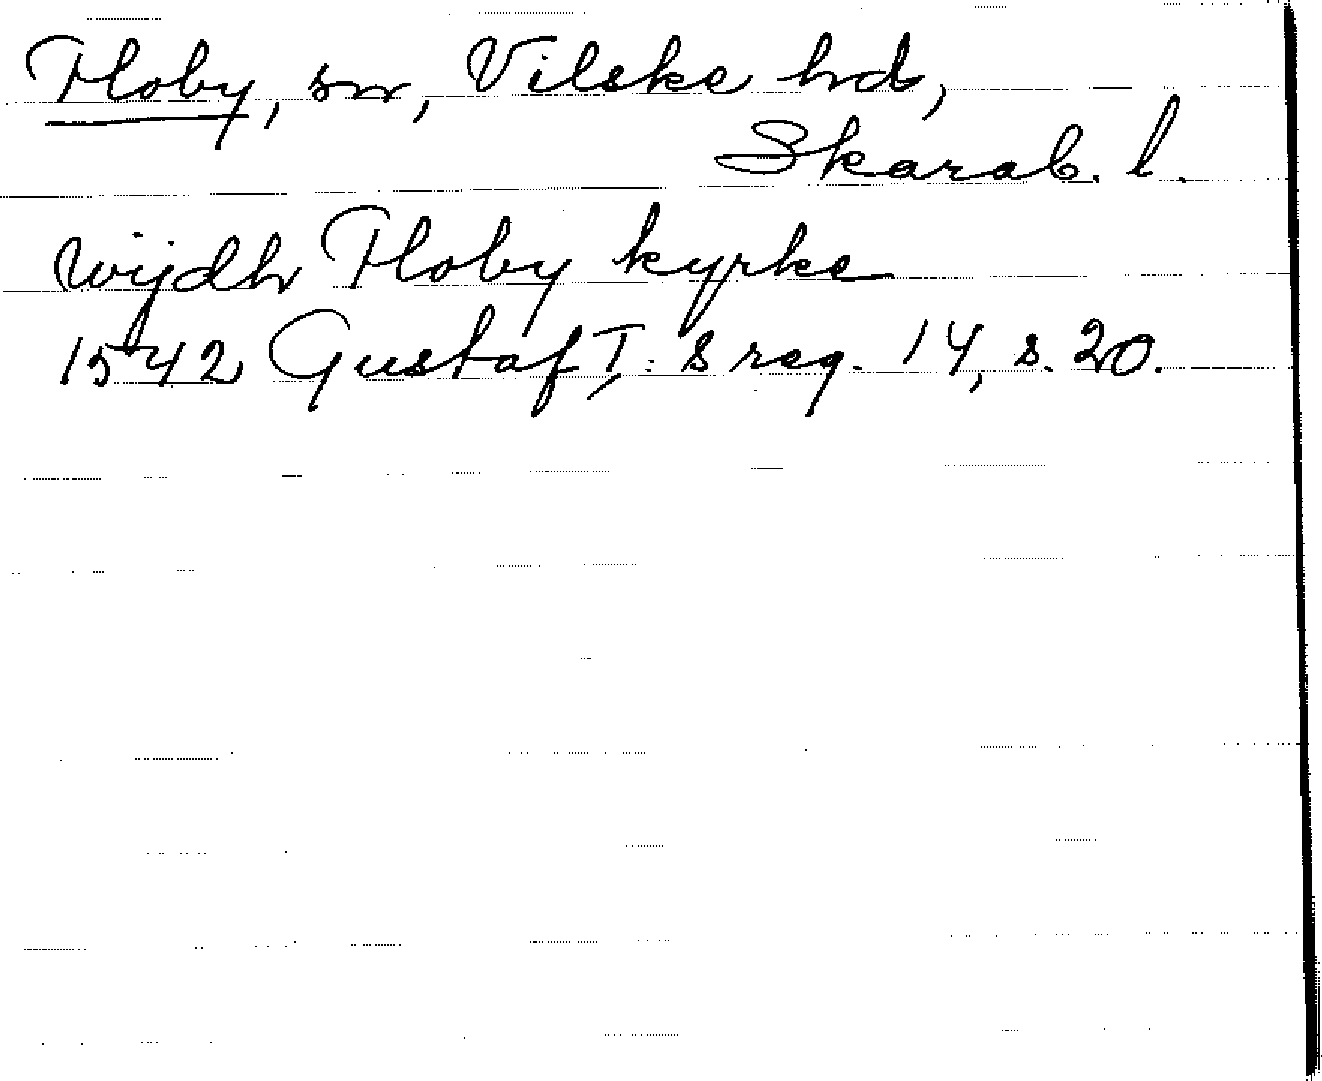 Floby, sn, Vilske hd,
Skarab. l.
wijdh Floby kyrke
1542 Gustaf I:s reg. 14, s. 20.